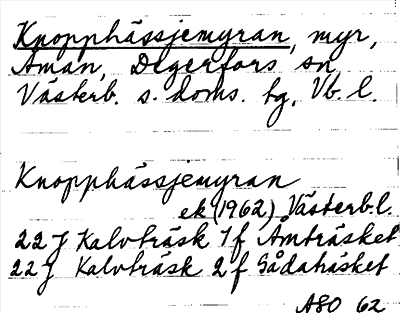 Knopphässjemyran, myr,
Åman, Degerfors sn,
Västerb. s. doms. tg, Vb. l.
Knopphässjemyran
ek (1962), Västerb.l.
22 J Kalvträsk 1 f Åmträsket
22 J Kalvträsk 2 f Gådaträsket
ASO 62